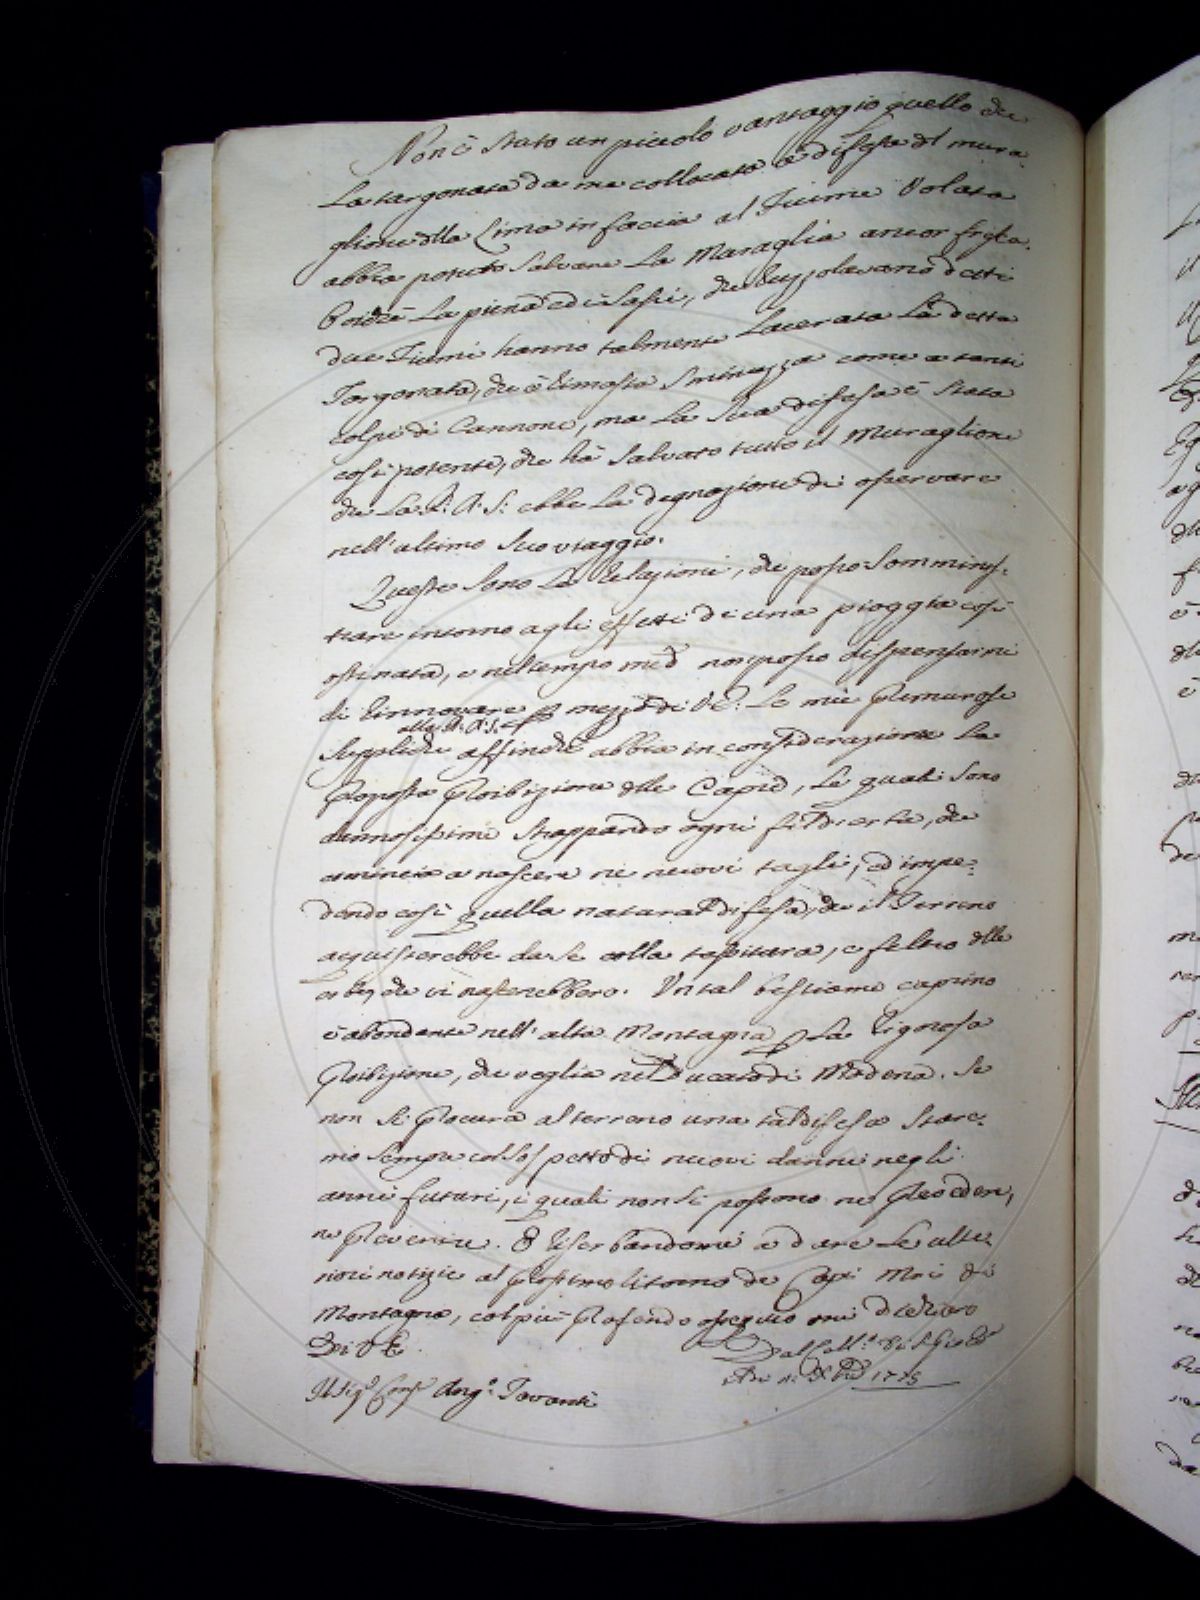 Non è stato un piccolo vantaggio quello che
La targonata da me collocata a difesa del mura
glione della Lima in faccia al Fiume Volata
abbia potuto salvare La Muraglia ancor fresca.
Poiche La piena ed i Sassi, che ruzzolavano detti
due Fiumi hanno talmente Lacerata La detta
Targonata, che è rimasta sminuzza come a tanti
colpi di Cannone, ma La sua difesa è stata
così potente, che hà salvato tutto il Muraglione
che La R: A: S: ebbe La degnazione di osservare
nell'ultimo suo viaggio.
Queste sono Le relazioni, che posso somminis-
trare intorno agli effetti di una pioggia così
ostinata, e nel tempo med.o non posso dispensarmi
di rinnovare p mezzo di V.E. Le mie premurose
alla R. A. S.
suppliche affinche abbia in considerazione La
proposta proibizione delle Capre, Le quali sono
dannosissime strappando ogni fil d'erba, che
comincia a nascere ne nuovi tagli, ed impe-
dendo così quella natural difesa, che il Terreno
acquisterebbe da se colla , e feltro delle
erbe, che vi nascerebbero. Un tal bestiame caprino
è abondante nell'alta Montagna p La rigorosa
proibizione, che veglia nel Ducato di Modena. Se
non si procura al terreno una tal difesa stare-
mo sempre col sospetto di nuovi danni negli
anni futuri, i quali non si possono ne prevedere,
ne prevenire. E riserbandomi a dare Le ulte-
riori notizie al prossimo ritorno de Capi Mri di
Montagna, col più profondo ossequio mi dichiaro
Di V E.
Dal Coll.o di S. Gio.
1775
Il Sig.e Cons.e Ang.o Tavanti